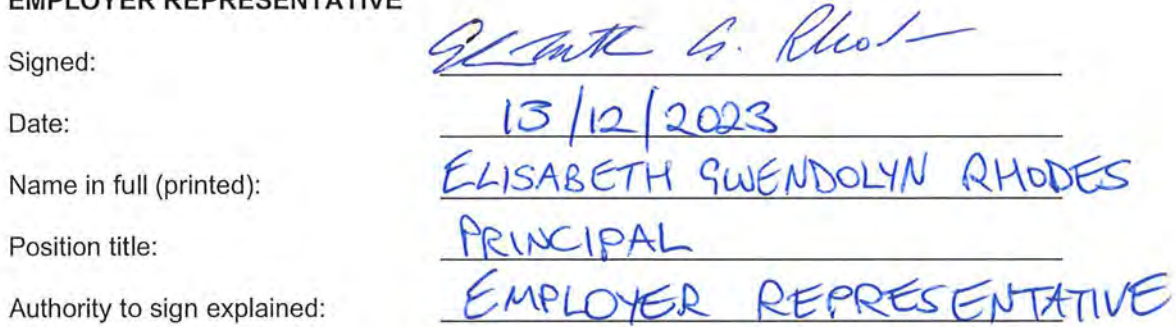 EMPLOYER REPRESENTATIVE
Signed: G. Rhod
Date: 13/12/2023
Name in full (printed): ELISABETH GWENDOLYN RHODES
Position title: PRINCIPAL
Authority to sign explained: EMPLOYER REPRESENTATIVE